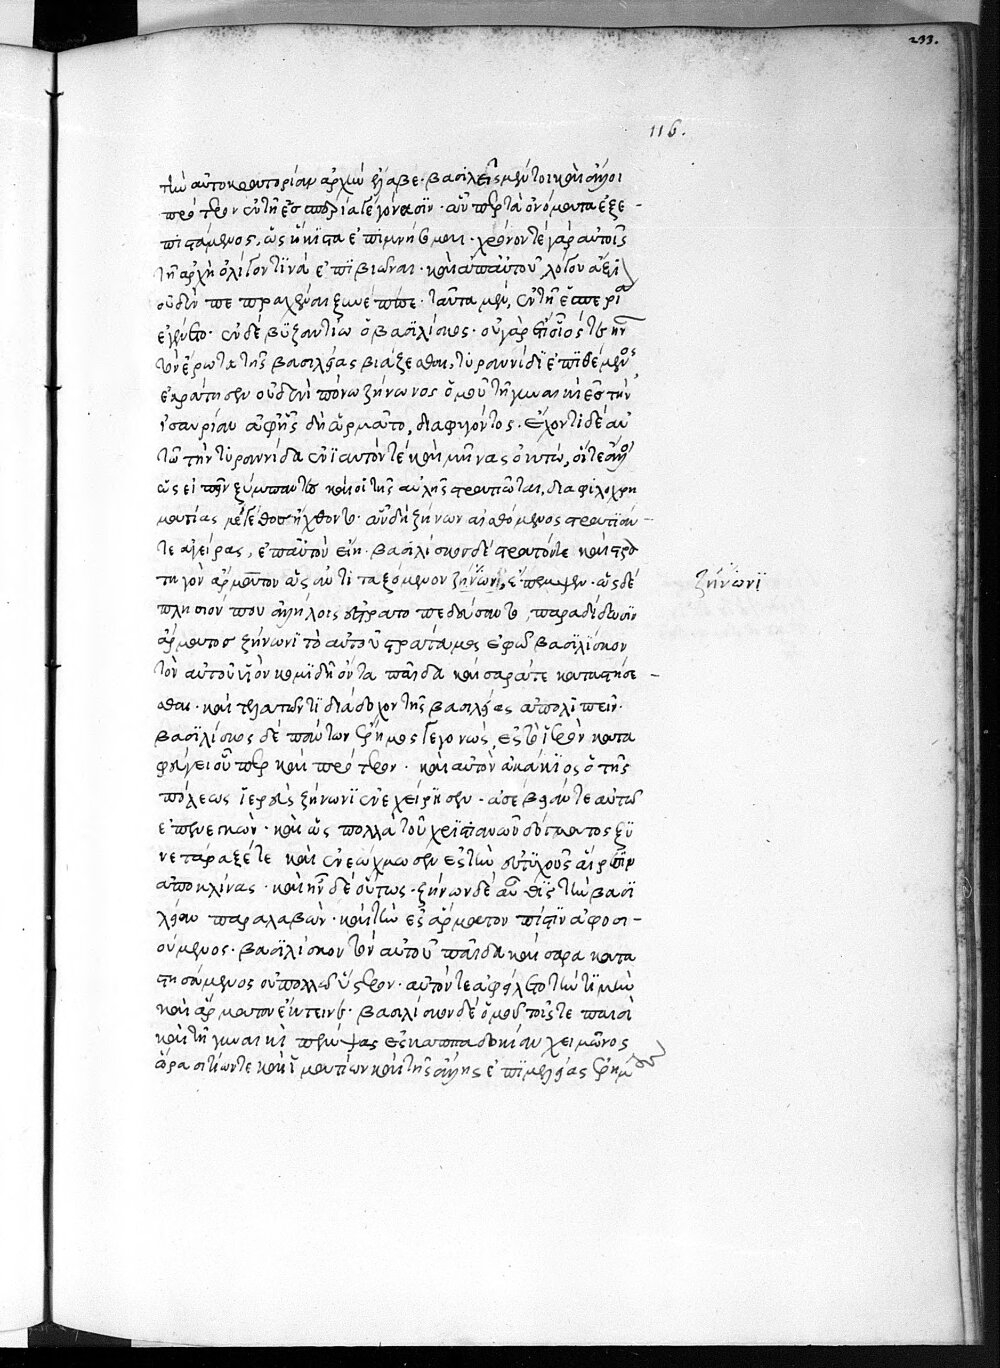 233.
116.
τὴν αὐτοκρατορίαν ἀρχὴν ἔλαβε. βασιλεῖς μέντοι καὶ ἄλλοι
πρότερον ἐν τῇ ἑσπερίᾳ γεγόνασιν. ὧνπερ τὰ ὀνόματα ἐξε-
πιστάμενος, ὡς ἥκιστα ἐπιμνήσομαι. χρόνον τε γὰρ αὐτοῖς
τῇ ἀρχῇ ὀλίγον τινὰ ἐπιβιῶναι. καὶ ἀπ' αὐτοῦ λόγου ἄξι
οὐδὲν πεπραχέναι ξυνέπεσε. ταῦτα μὲν, ἐν τῇ ἑσπερίᾳ
ἐγένετο. ἐν δὲ βυζαντίῳ ὁ βασιλίσκος. οὐ γὰρ ἔτι οἷός τε ἦν
τὸν ἔρωτα τῆς βασιλείας βιάζεσθαι, τυραννίδι ἐπιθέμενος
ἐκράτησεν οὐδενὶ πόνῳ ζήνωνος ὁμοῦ τῇ γυναικὶ ἐς τὴν
ἰσαυρίαν ἀφ' ἧς δὴ ὥρμητο, διαφυγόντος. ἔχοντι δὲ αὐ
τῷ τὴν τυραννίδα ἐνιαυτόν τε καὶ μῆνας ὀκτώ, οἵ τε ἄλλοι
ὡς εἰπεῖν ξύμπαντες καὶ οἱ τῆς αὐλῆς στρατιῶται, διὰ φιλοχρη
ματίας μέγεθος ἤχθοντο. ὧν δὴ ζήνων αἰσθόμενος στρατιάν
τε ἀγείρας, ἐπ' αὐτὸν ᾔει. βασιλίσκος δὲ στρατόν τε καὶ στρα
τηγὸν ἁρμάτον ὡς ἀντιταξόμενον ζήνωνι, ἔπεμψεν. ὡς δὲ
ζήνωνι
πλησίον που ἀλλήλοις ἐστρατοπεδεύσαντο, παραδίδωσιν
ἅρματος ζήνωνι τὸ αὐτοῦ στράτευμα ἐφ' ᾧ βασιλίσκον
τὸν αὐτοῦ υἱὸν κομιδῇ ὄντα παῖδα καίσαρά τε καταστήσε-
σθαι. καὶ τελευτῶντι διάδοχον τῆς βασιλείας ἀπολιπεῖν.
βασιλίσκος δὲ πάντων ἔρημος γεγονώς, ἐς τὸ ἱερὸν κατα
φεύγει οὗπερ καὶ πρότερον. καὶ αὐτὸν ἀκάκιος ὁ τῆς
πόλεως ἱερεὺς ζήνωνι ἐνεχείρησεν. ἀσέβειάν τε αὐτῷ
ἐπενεγκών. καὶ ὡς πολλὰ τοῦ χριστιανῶν δόγματος ξυ
νετάραξέ τε καὶ ἐνεόχμωσεν ἐς τὴν εὐτυχοῦς αἵρεσιν
ἀποκλίνας. καὶ ἦν δὲ οὕτως. ζήνων δὲ αὖθις τὴν βασι
λείαν παραλαβὼν. καὶ τὴν ἐς ἅρματον πίστιν ἀφοσι-
ούμενος. βασιλίσκον τὸν αὐτοῦ παῖδα καίσαρα κατα
στησάμενος οὐ πολλῷ ὕστερον. αὐτόν τε ἀφείλετο τὴν τιμὴν
καὶ ἅρματον ἔκτεινε. βασιλίσκον δὲ ὁμοῦ τοῖς τε παισὶ
καὶ τῇ γυναικὶ πέμψας ἐς καππαδοκίαν χειμῶνος
ὥρᾳ σιτίων τε καὶ ἱματίων καὶ τῆς ἄλλης ἐπιμελείας ἐρήμους